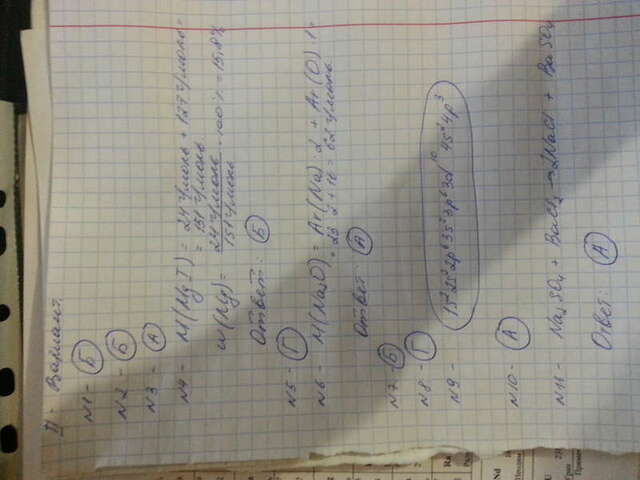 II - Вариант.
N1 - Б
N2 - Б
N3 - А
N4 - M(MgI) = 24 г/моль + 127 г/моль =
= 151 г/моль.
w(Mg) = 24 г/моль / 151 г/моль · 100% = 15,8%
Ответ: Б
N5 - Г
N6 - M(Na2O) = Ar(Na) · 2 + Ar(O) · 1 =
= 23 · 2 + 16 = 62 г/моль.
Ответ: А
N7 - Б
N8 - Г
N9 - 1s²2s²2p⁶3s²3p⁶3d¹⁰4s²4p³
N10 - А
N11 - Na2SO4 + BaCl2 → 2NaCl + BaSO4
Ответ: А
Nd
Ra